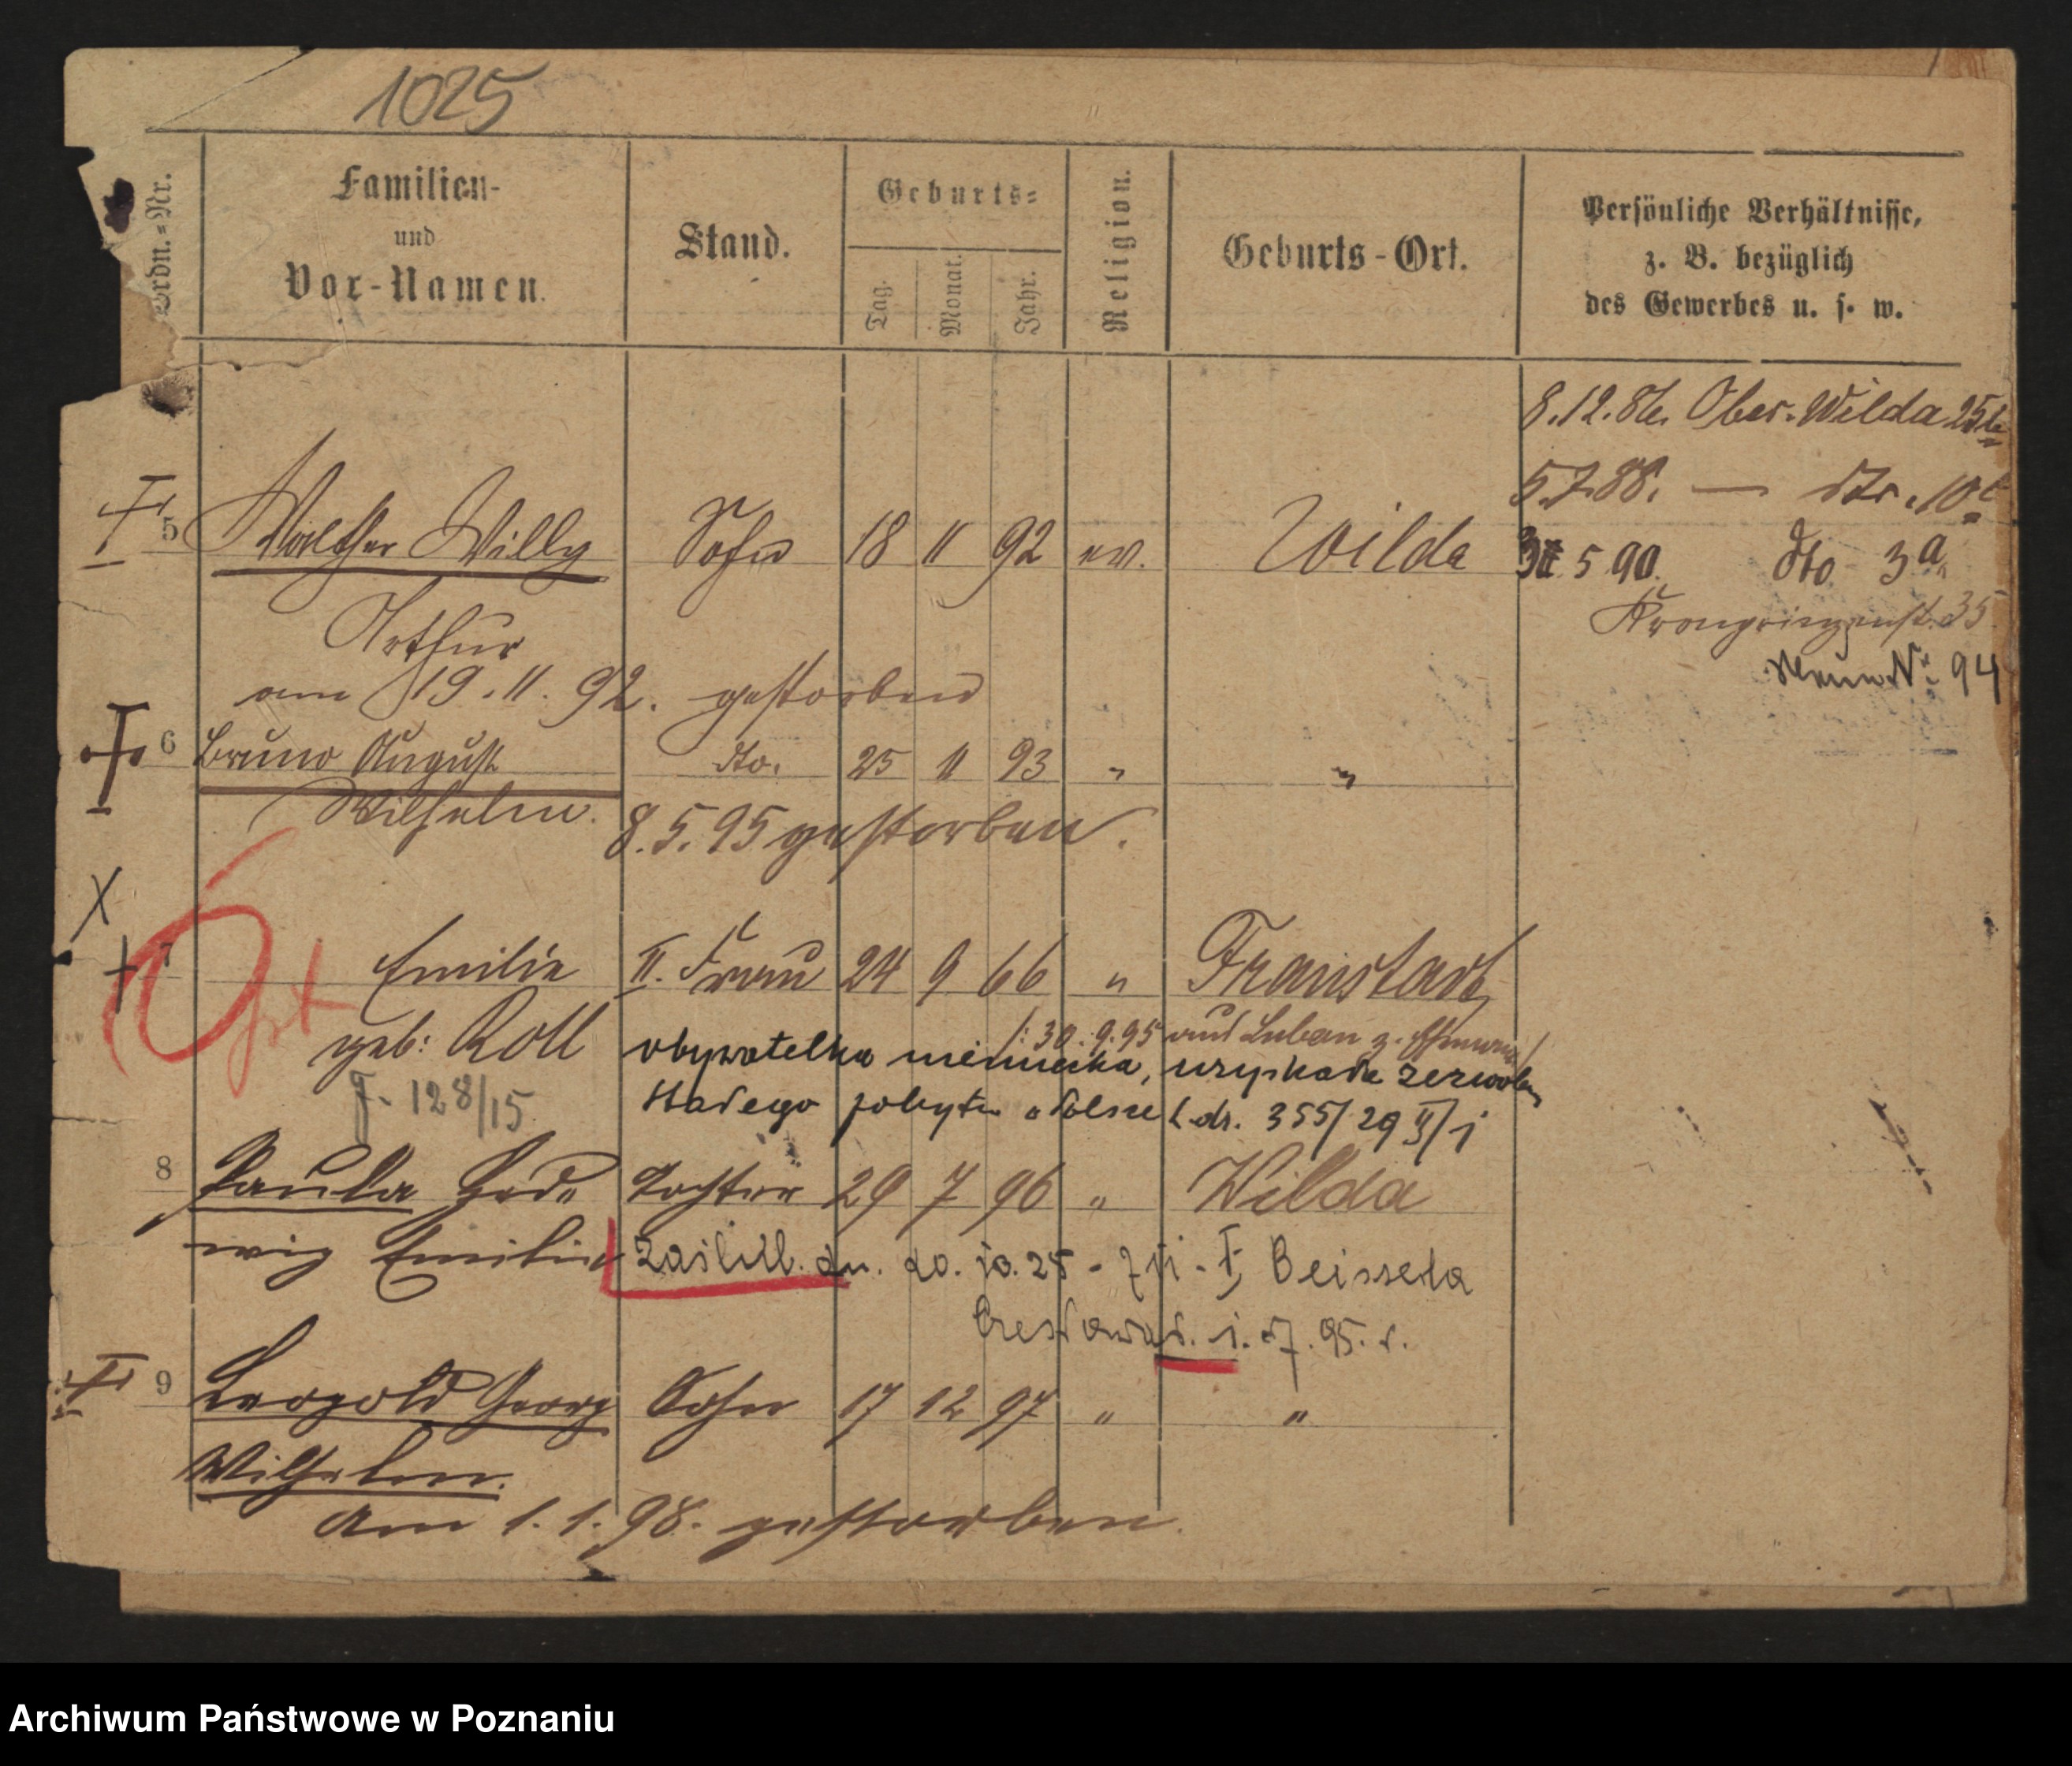 1025
Ordn.-Nr.
Familien-
und
Vor-Namen.
Stand.
Geburts-
Tag.
Monat.
Jahr.
Religion.
Geburts-Ort.
Persönliche Verhältnisse,
z. B. bezüglich
des Gewerbes u. s. w.
8.12.86. Ober-Wilda 25b
5.7.88. — dto. 10c
5 90. dto 3a
Kronprinzenst. 35
Neue No 94
5 Walther Willy Sohn 18 11 92 ev. Wilda
Arthur
am 19.11.92. gestorben
6 Bruno August dto. 25 11 93 " "
Wilhelm. 8.5.95 gestorben.
X
7 Emilie II. Frau 24 9 66 " Fraustadt
geb: Roll
/: 30.9.95 aus Luban z.
obywatelka niemiecka, uzyskała zezwolen
J. 128/15
stałego pobytu Polsce L.dr. 355/29 II/j
8 Paula Hed- Tochter 29 7 96 " Wilda
wig Emilie
zaślub. dn. 20.10.25 - 7
1.7.95. r.
9 Leopold Georg Sohn 17 12 97 " "
Wilhelm.
am 1.1.98. gestorben.
Archiwum Państwowe w Poznaniu